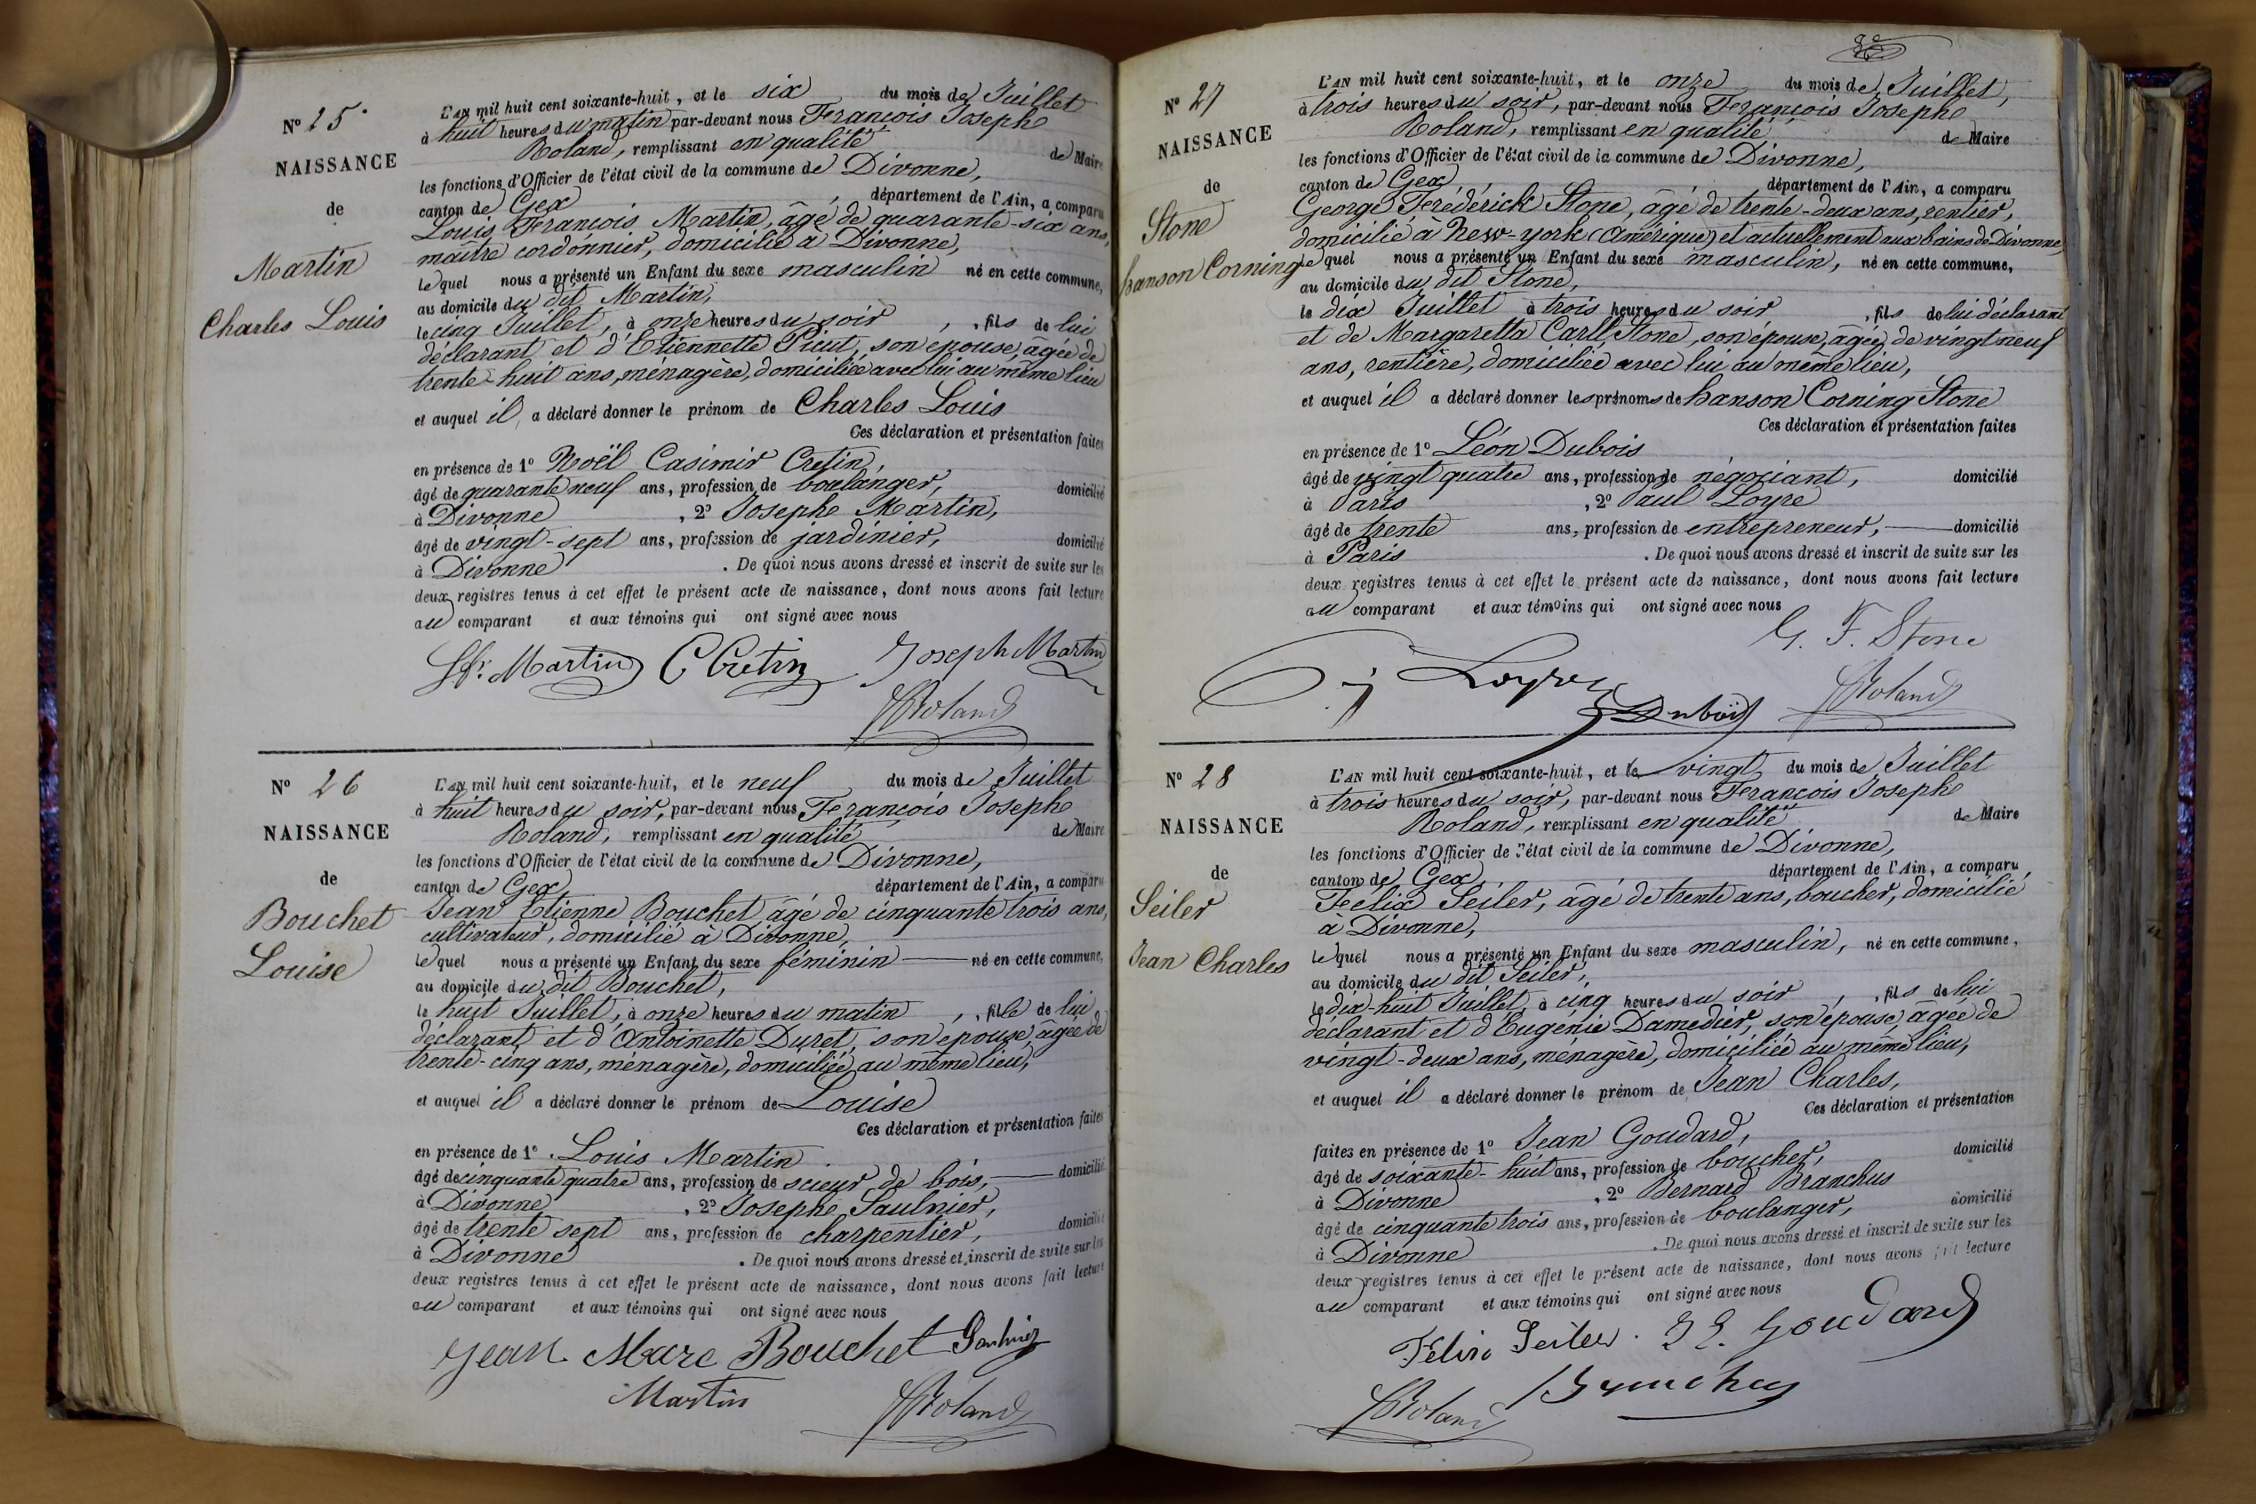 Nº 25.
NAISSANCE
de
Martin
Charles Louis
L'AN mil huit cent soixante-huit, et le six du mois de Juillet
à huit heures du matin par-devant nous François Joseph
Roland, remplissant en qualité de Maire
les fonctions d'Officier de l'état civil de la commune de Divonne,
canton de Gex, département de l'Ain, a comparu
Louis François Martin, âgé de quarante-six ans,
maître cordonnier, domicilié à Divonne,
lequel nous a présenté un Enfant du sexe masculin né en cette commune,
au domicile du dit Martin,
le cinq Juillet, à onze heures du soir, fils de lui
déclarant et d'Etiennette Picut, son épouse, âgée de
trente-huit ans, ménagère, domiciliée avec lui au même lieu
et auquel il a déclaré donner le prénom de Charles Louis
Ces déclaration et présentation faites
en présence de 1º Noël Casimir Cretin,
âgé de quarante neuf ans, profession de boulanger, domicilié
à Divonne, 2º Joseph Martin,
âgé de vingt-sept ans, profession de jardinier, domicilié
à Divonne. De quoi nous avons dressé et inscrit de suite sur les
deux registres tenus à cet effet le présent acte de naissance, dont nous avons fait lecture
au comparant et aux témoins qui ont signé avec nous
Martin C Cretin Joseph Martin
Roland
Nº 26
NAISSANCE
de
Bouchet
Louise
L'AN mil huit cent soixante-huit, et le neuf du mois de Juillet
à huit heures du soir, par-devant nous François Joseph
Roland, remplissant en qualité de Maire
les fonctions d'Officier de l'état civil de la commune de Divonne,
canton de Gex, département de l'Ain, a comparu
Jean Etienne Bouchet âgé de cinquante trois ans,
cultivateur, domicilié à Divonne,
lequel nous a présenté un Enfant du sexe féminin né en cette commune,
au domicile du dit Bouchet,
le huit Juillet, à onze heures du matin, fille de lui
déclarant et d'Antoinette Duret, son épouse, âgée de
trente-cinq ans, ménagère, domiciliée au même lieu,
et auquel il a déclaré donner le prénom de Louise
Ces déclaration et présentation faites
en présence de 1º Louis Martin
âgé de cinquante quatre ans, profession de scieur de bois, domicilié
à Divonne, 2º Joseph Saulnier,
âgé de trente sept ans, profession de charpentier, domicilié
à Divonne. De quoi nous avons dressé et inscrit de suite sur les
deux registres tenus à cet effet le présent acte de naissance, dont nous avons fait lecture
au comparant et aux témoins qui ont signé avec nous
Jean Marc Bouchet Saulnier
Martin Roland
Nº 27
NAISSANCE
de
Stone
hanson Corning
L'AN mil huit cent soixante-huit, et le onze du mois de Juillet,
à trois heures du soir, par-devant nous François Joseph
Roland, remplissant en qualité de Maire
les fonctions d'Officier de l'état civil de la commune de Divonne,
canton de Gex, département de l'Ain, a comparu
George Frédérick Stone, âgé de trente-deux ans, rentier,
domicilié à New-york (Amérique) et actuellement aux bains de Divonne,
lequel nous a présenté un Enfant du sexe masculin, né en cette commune,
au domicile du dit Stone,
le dix Juillet à trois heures du soir, fils de lui déclarant
et de Margaretta Carll Stone, son épouse, âgée de vingt neuf
ans, rentière, domiciliée avec lui au même lieu,
et auquel il a déclaré donner les prénoms de hanson Corning Stone
Ces déclaration et présentation faites
en présence de 1º Léon Dubois
âgé de vingt quatre ans, profession de négociant, domicilié
à Paris, 2º Paul Loyre
âgé de trente ans, profession de entrepreneur, domicilié
à Paris. De quoi nous avons dressé et inscrit de suite sur les
deux registres tenus à cet effet le présent acte de naissance, dont nous avons fait lecture
au comparant et aux témoins qui ont signé avec nous
G. F. Stone
Loyre Dubois Roland
Nº 28
NAISSANCE
de
Seiler
Jean Charles
L'AN mil huit cent soixante-huit, et le vingt du mois de Juillet
à trois heures du soir, par-devant nous François Joseph
Roland, remplissant en qualité de Maire
les fonctions d'Officier de l'état civil de la commune de Divonne,
canton de Gex, département de l'Ain, a comparu
Felix Seiler, âgé de trente ans, boucher, domicilié
à Divonne,
lequel nous a présenté un Enfant du sexe masculin, né en cette commune,
au domicile du dit Seiler,
le dix-huit Juillet à cinq heures du soir, fils de lui
déclarant et d'Eugénie Damedier, son épouse, âgée de
vingt-deux ans, ménagère, domiciliée au même lieu,
et auquel il a déclaré donner le prénom de Jean Charles,
Ces déclaration et présentation
faites en présence de 1º Jean Goudard,
âgé de soixante-huit ans, profession de boucher, domicilié
à Divonne, 2º Bernard Branchus
âgé de cinquante trois ans, profession de boulanger, domicilié
à Divonne. De quoi nous avons dressé et inscrit de suite sur les
deux registres tenus à cet effet le présent acte de naissance, dont nous avons fait lecture
au comparant et aux témoins qui ont signé avec nous
Félix Seiler. Goudard
Roland Branchus